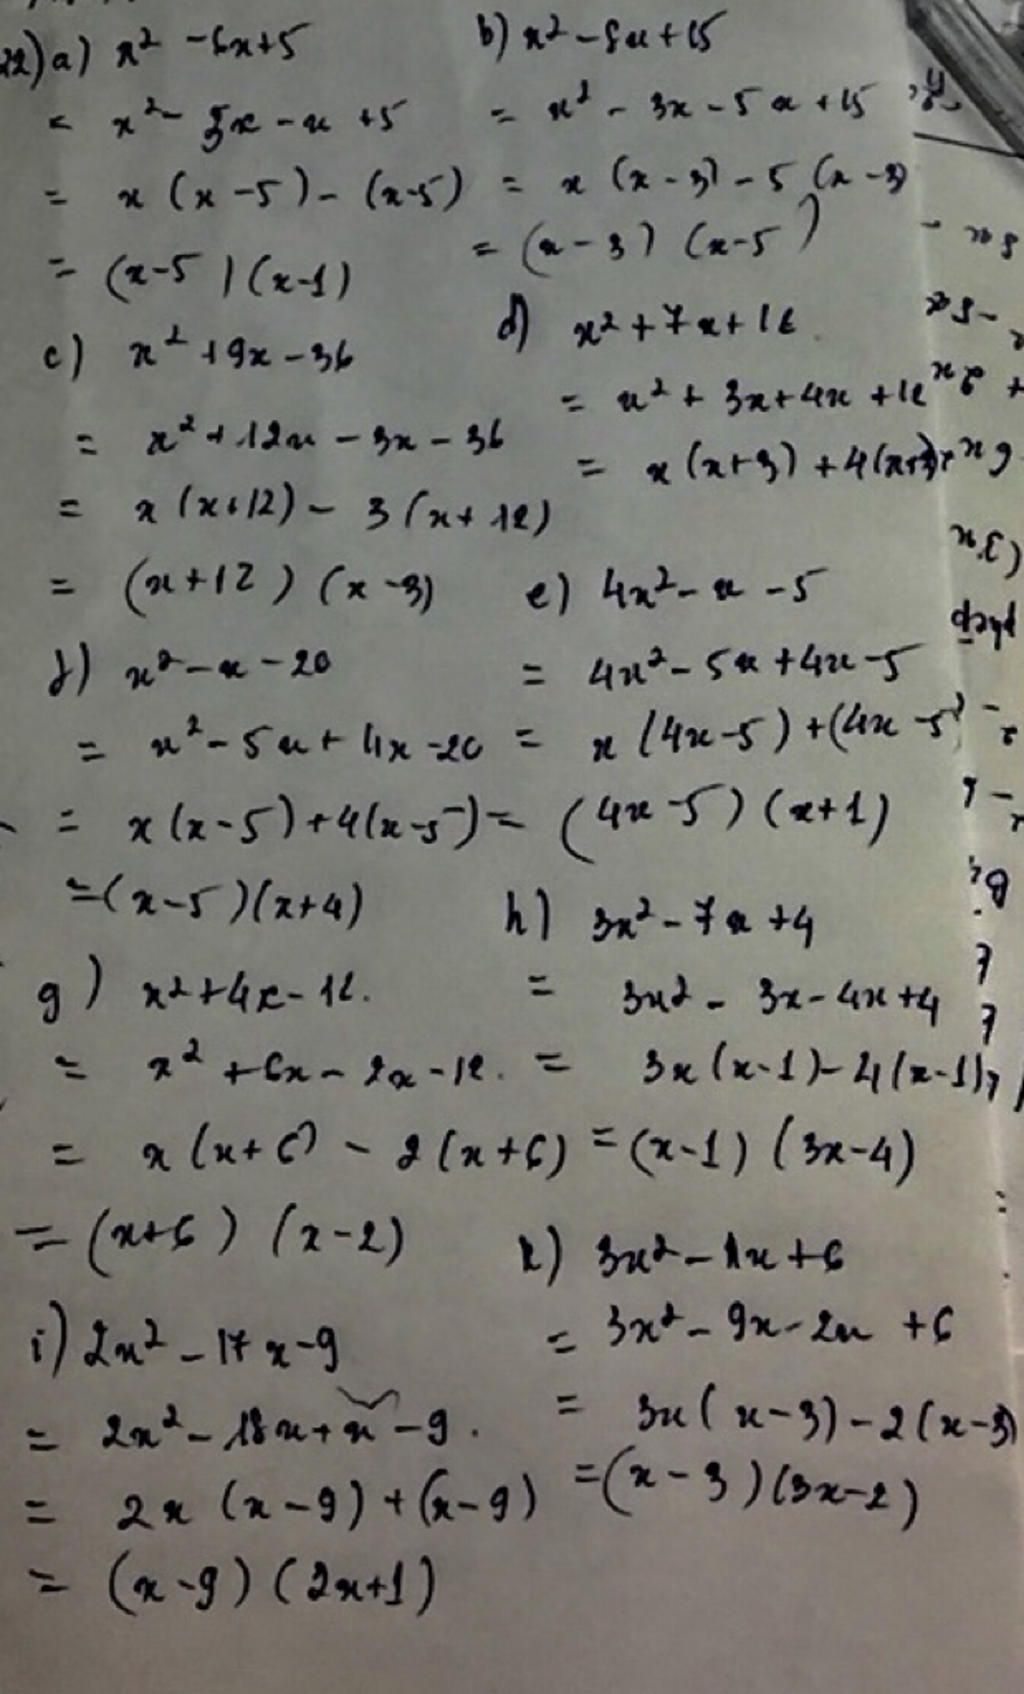 22) a) x² - 6x + 5
= x² - 5x - x + 5
= x (x - 5) - (x - 5)
= (x - 5) (x - 1)
b) x² - 8x + 15
= x² - 3x - 5x + 15
= x (x - 3) - 5 (x - 3)
= (x - 3) (x - 5)
c) x² + 9x - 36
= x² + 12x - 3x - 36
= x (x + 12) - 3 (x + 12)
= (x + 12) (x - 3)
d) x² + 7x + 12
= x² + 3x + 4x + 12
= x (x + 3) + 4 (x + 3)
e) 4x² - x - 5
= 4x² - 5x + 4x - 5
= x (4x - 5) + (4x - 5)
= (4x - 5) (x + 1)
f) x² - x - 20
= x² - 5x + 4x - 20
= x (x - 5) + 4 (x - 5)
= (x - 5) (x + 4)
g) x² + 4x - 12.
= x² + 6x - 2x - 12.
= x (x + 6) - 2 (x + 6)
= (x + 6) (x - 2)
h) 3x² - 7x + 4
= 3x² - 3x - 4x + 4
= 3x (x - 1) - 4 (x - 1)
= (x - 1) (3x - 4)
i) 2x² - 17x - 9
= 2x² - 18x + x - 9.
= 2x (x - 9) + (x - 9)
= (x - 9) (2x + 1)
k) 3x² - 11x + 6
= 3x² - 9x - 2x + 6
= 3x (x - 3) - 2 (x - 3)
= (x - 3) (3x - 2)